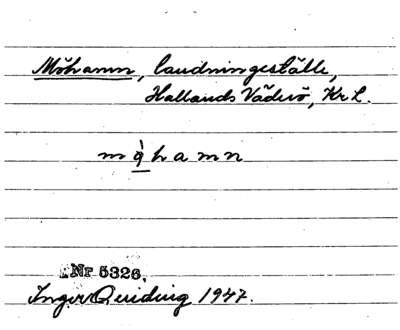 Möhamn, landningsställe,
Hallands Väderö, Kr L.
m ö̀ h a m n
Nr 5326.
Inger Quiding 1947.